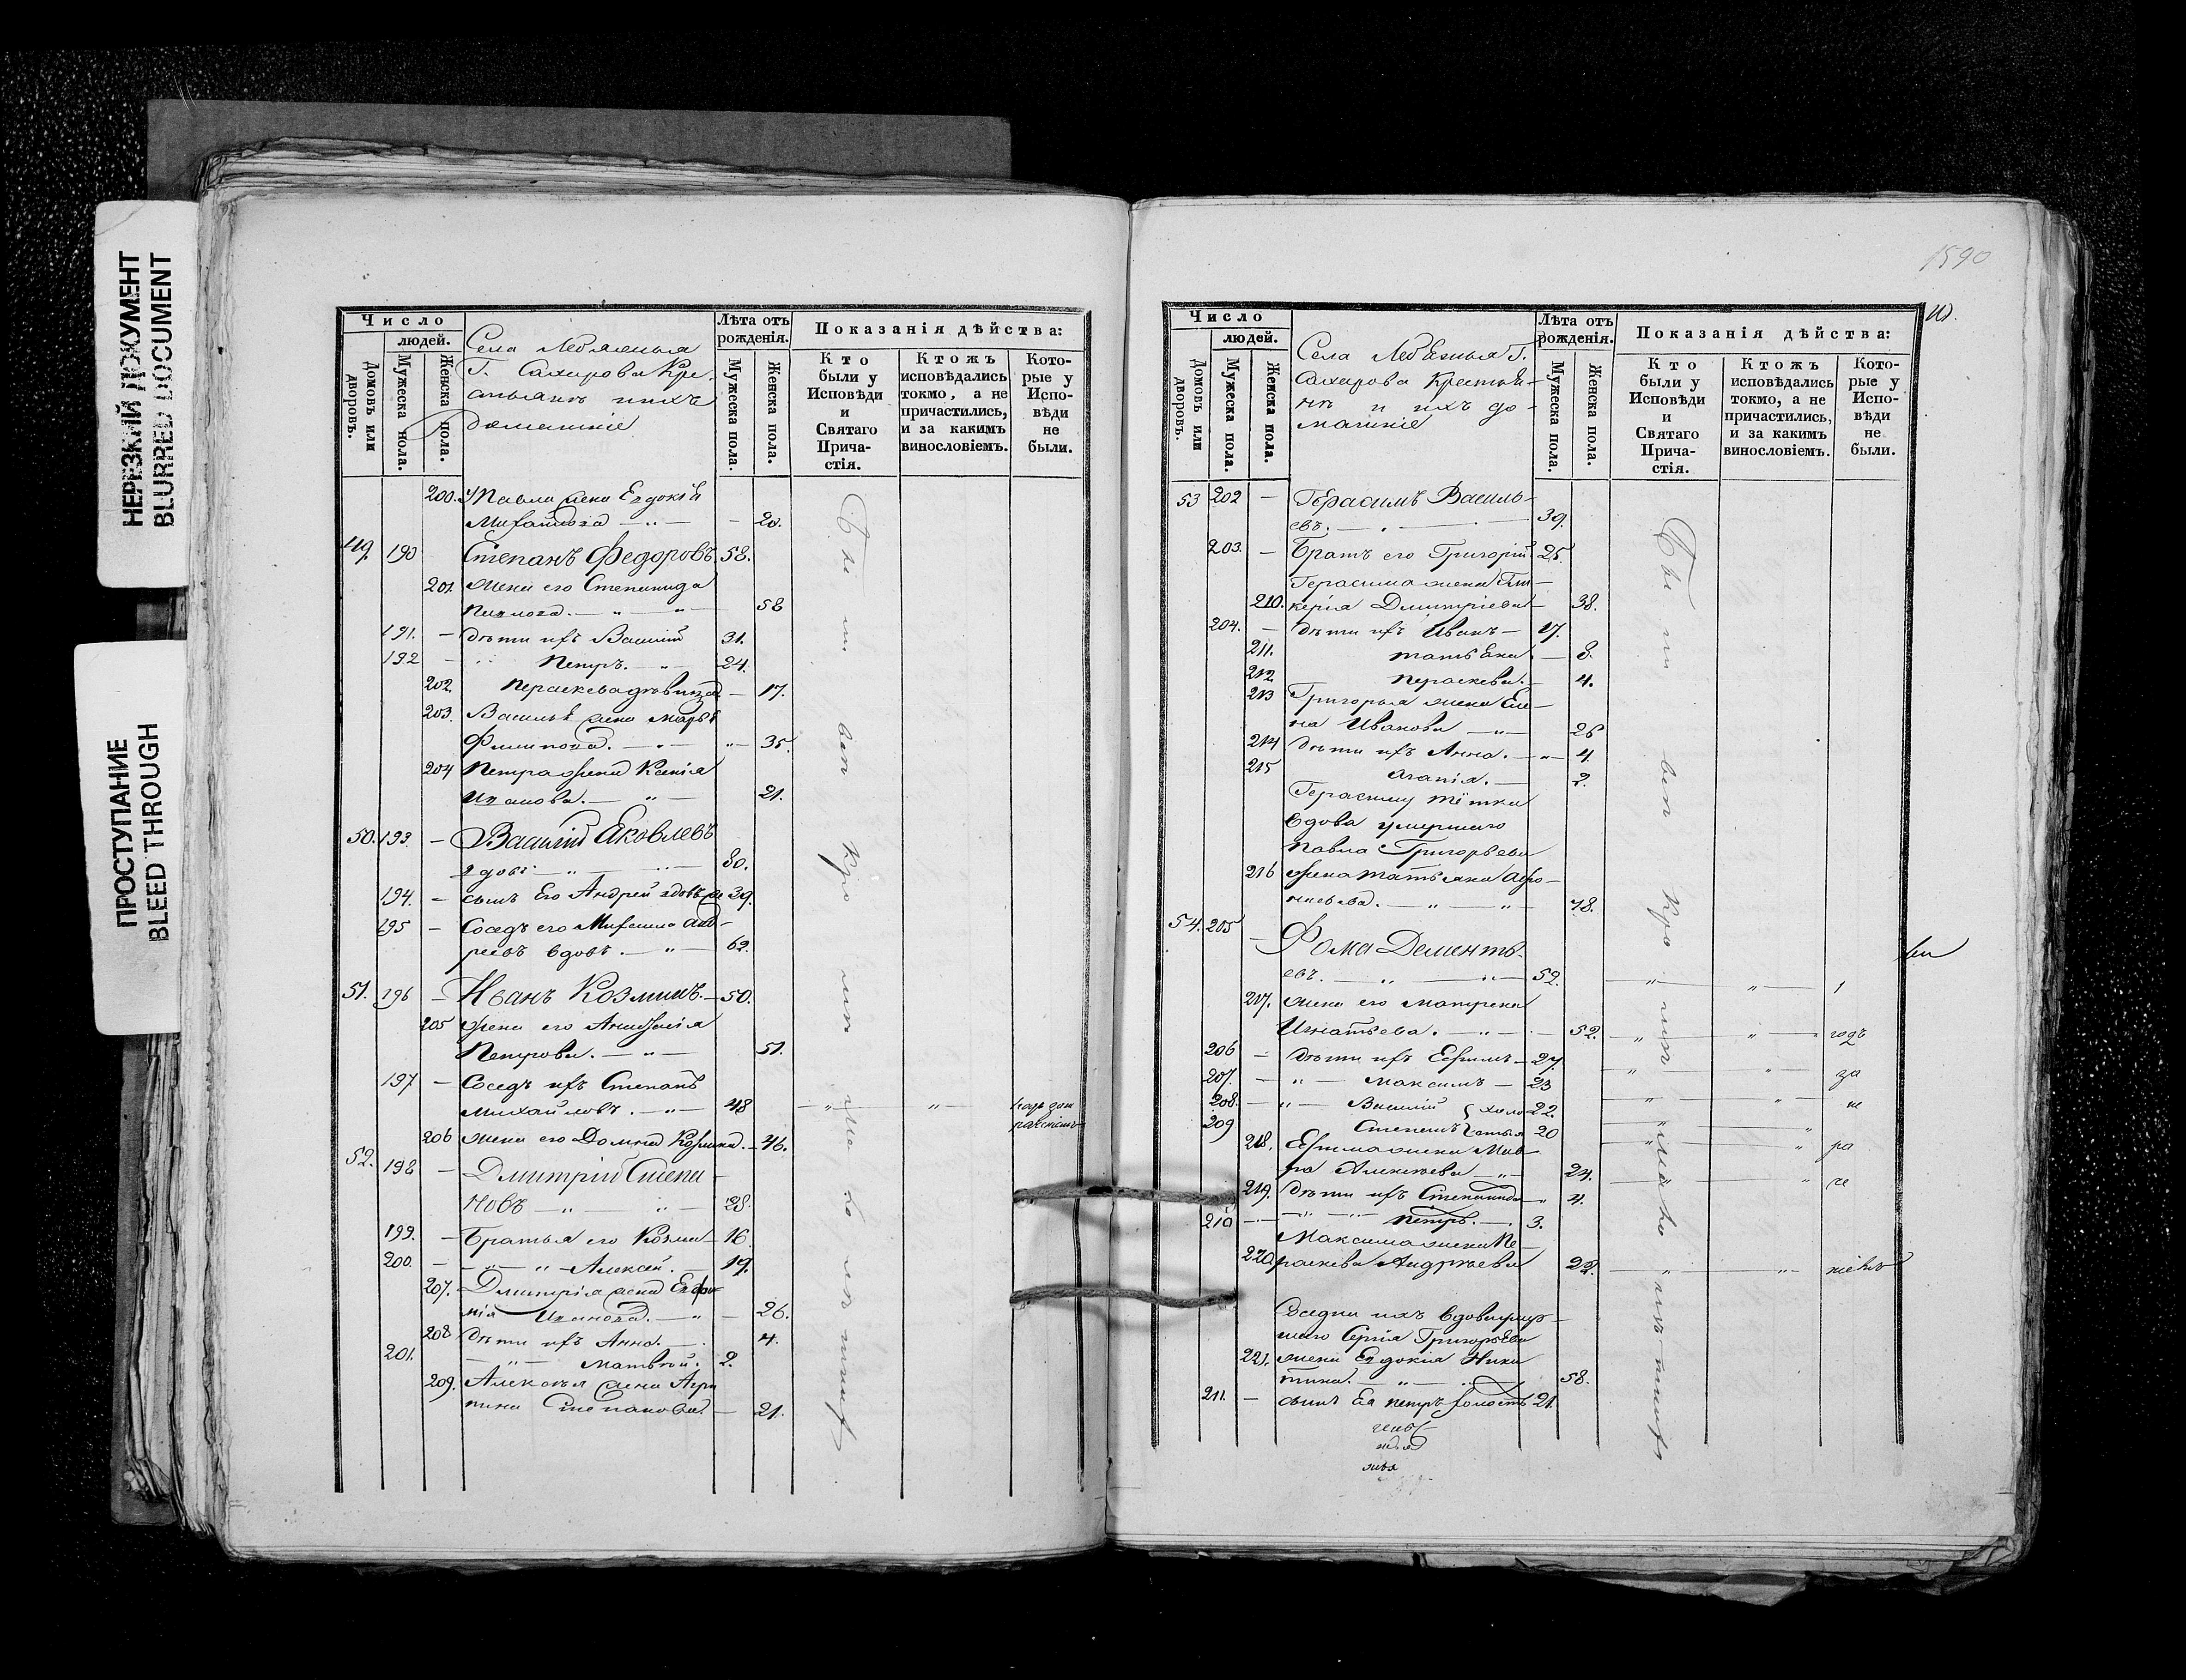 НЕРЕЗКИЙ ДОКУМЕНТ
BLURRED DOCUMENT
ПРОСТУПАНИЕ
BLEED THROUGH
Число
людей.
Домовъ или дворовъ.
Мужеска пола.
Женска пола.
Села
Г. Сахарова Кре-
стьянъ и ихъ
домашніе
Лѣта отъ рожденія.
Мужеска пола.
Женска пола.
Показанія дѣйства:
Кто были у Исповѣди и Святаго Прича-стія.
Ктожъ исповѣдались токмо, а не причастились, и за какимъ винословіемъ.
Кото-рые у Испо-вѣди не были.
200. Павла жена Евдокія
Михайлова — " — — 20.
49. 190 Степанъ Федоровъ 58.
201. жена его Степанида
Павлова. — " — " — 58
191. — дѣти ихъ Василій 31.
192 — Петръ. — " — 24.
202. Параскева дѣвица — 17.
203. Василья жена Марья
Филипова. — " — " — 35.
204 Петра жена Ксенія
Иванова. — " — 21.
50. 193. — Василій Яковлевъ
вдовъ — " — 80.
194. — сынъ Его Андрей вдовъ 39.
195 — Соседъ его Михаила Анд-
реевъ вдовъ. — " — 62.
51. 196 — Иванъ Козминъ. — 50.
205 жена его Анастасія
Петрова. — " — 51.
197 — Соседъ ихъ Степанъ
Михайловъ. — " — 48 — " — " —
206 жена его Домна Козмина. — 46.
52. 198 — Дмитрій Степа-
новъ — " — " — 28.
199. — Братья его Козма — 16.
200. — — " — " — Алексей. — 19.
207. Дмитрія жена Евфи-
мія Иванова. — " — — 26.
208 дѣти ихъ Анна. — 4.
201. — " — Матвѣй. 2.
209. Алексѣя жена Агри
пина Степанова. — 21.
1590
Число
людей.
Домовъ или дворовъ.
Мужеска пола.
Женска пола.
Села Г.
Сахарова Крестья-
нъ и ихъ до-
машніе
Лѣта отъ рожденія.
Мужеска пола.
Женска пола.
Показанія дѣйства:
Кто были у Исповѣди и Святаго Прича-стія.
Ктожъ исповѣдались токмо, а не причастились, и за какимъ винословіемъ.
Кото-рые у Испо-вѣди не были.
53 202 — Герасимъ Василь-
евъ. — 39.
203. — Братъ его Григорій 25.
Герасима жена Гли-
210. керіа Дмитріева — 38.
204. — дѣти ихъ Иванъ — 17.
211. Татьяна. — 8.
212. Параскева. — 4.
213 Григорья жена Еле-
на Иванова — " — 26
214 дѣти ихъ Анна. — " — 4
215 Агапія. — 2.
Герасиму тётка
вдова умершаго
Павла Григорьева
216 жена Татьяна Афо-
ньева. — " — " — 78.
54. 205 — Фома Дементь-
евъ. — " — " — 52. — " — " — 1
217. жена его Матрена
Игнатьева. — " — 52. — " — " — годъ
206 — дѣти ихъ Ефимъ — 27. — " — " — за
207. — " — Максимъ — 23 — " — " — не
208. — " — Василій холо 22.
209 Степанъ стыя 20
218. Ефима жена Мав-
ра Алексѣева " 24.
219. дѣти ихъ Степанида — " 4.
210 — " — " — Петръ. — 3.
Максима жена Па-
220. раскева Андрѣева 22. — " — " — ніемъ
Соседка ихъ вдова умер-
шаго Сергія Григорьева
221. жена Евдокія Ники
тина. — " — 58.
211. — сынъ Ея Петръ холостъ 21.